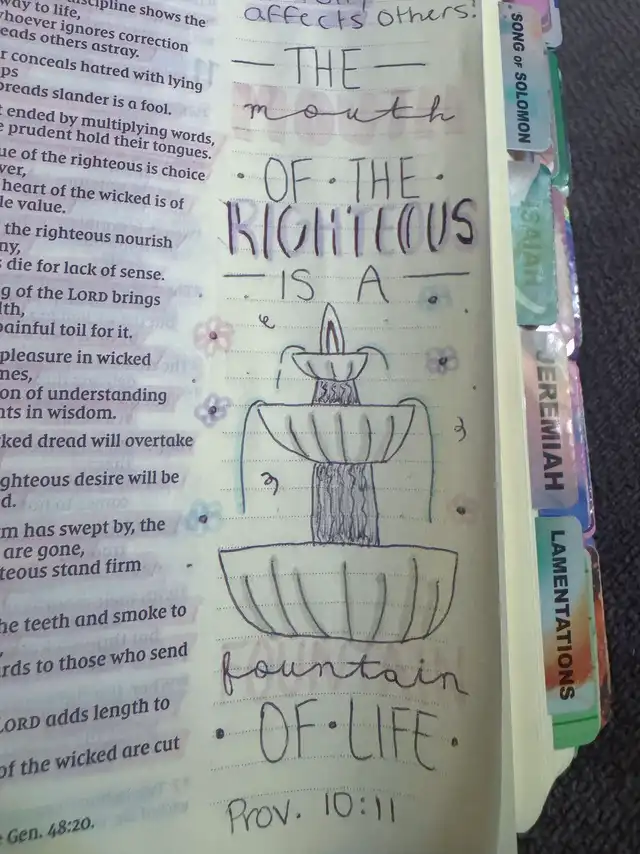 discipline shows the
way to life,
whoever ignores correction
leads others astray.
conceals hatred with lying
spreads slander is a fool.
ended by multiplying words,
prudent hold their tongues.
of the righteous is choice
heart of the wicked is of
value.
the righteous nourish
die for lack of sense.
of the LORD brings
painful toil for it.
pleasure in wicked
of understanding
in wisdom.
dread will overtake
righteous desire will be
has swept by, the
are gone,
stand firm
the teeth and smoke to
to those who send
LORD adds length to
of the wicked are cut
Gen. 48:20.
affects others!
THE
mouth
OF · THE
RIGHTEOUS
IS A
fountain
· OF · LIFE ·
Prov. 10:11
SONG OF SOLOMON
ISAIAH
JEREMIAH
LAMENTATIONS